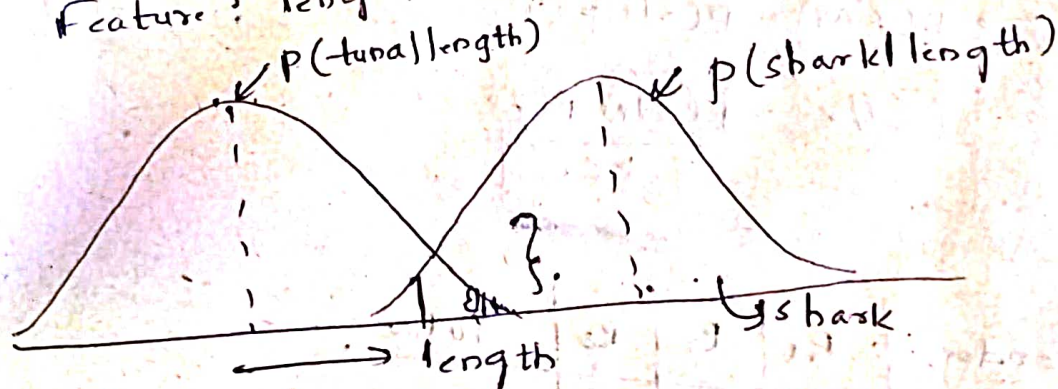 Feature : leng
P(tuna|length)
p(shark|length)
shark.
length